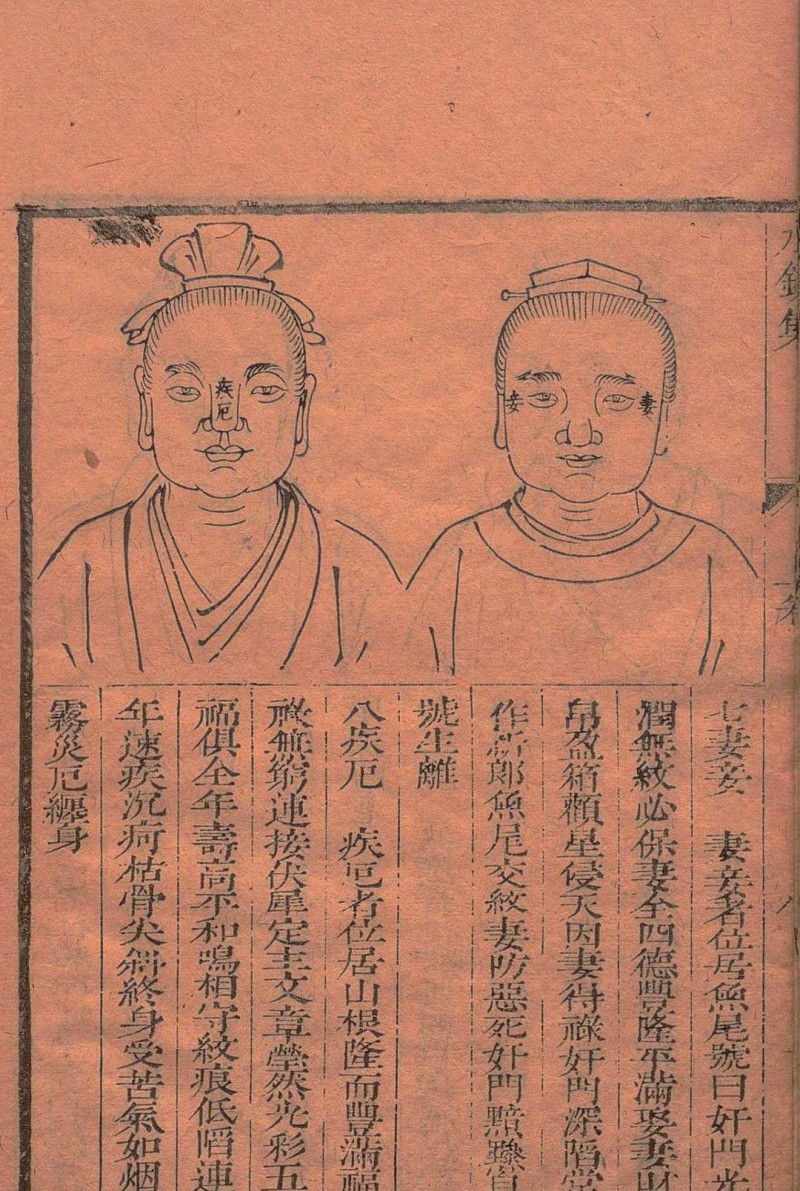 水鏡集
疾厄
妻
妾
七妻妾 妻妾者位居魚尾號曰奸門光
潤無紋必保妻全四德豐隆平滿娶妻財
帛盈箱顴星侵天因妻得祿奸門深陷常
作新郎魚尾交紋妻防惡死奸門黯黲自
號生離
八疾厄 疾厄者位居山根隆而豐滿福
祿無窮連接伏犀定主文章瑩然光彩五
福俱全年壽高平和鳴相守紋痕低陷連
年速疾沉疴枯骨尖斜終身受苦氣如烟
霧災厄纏身